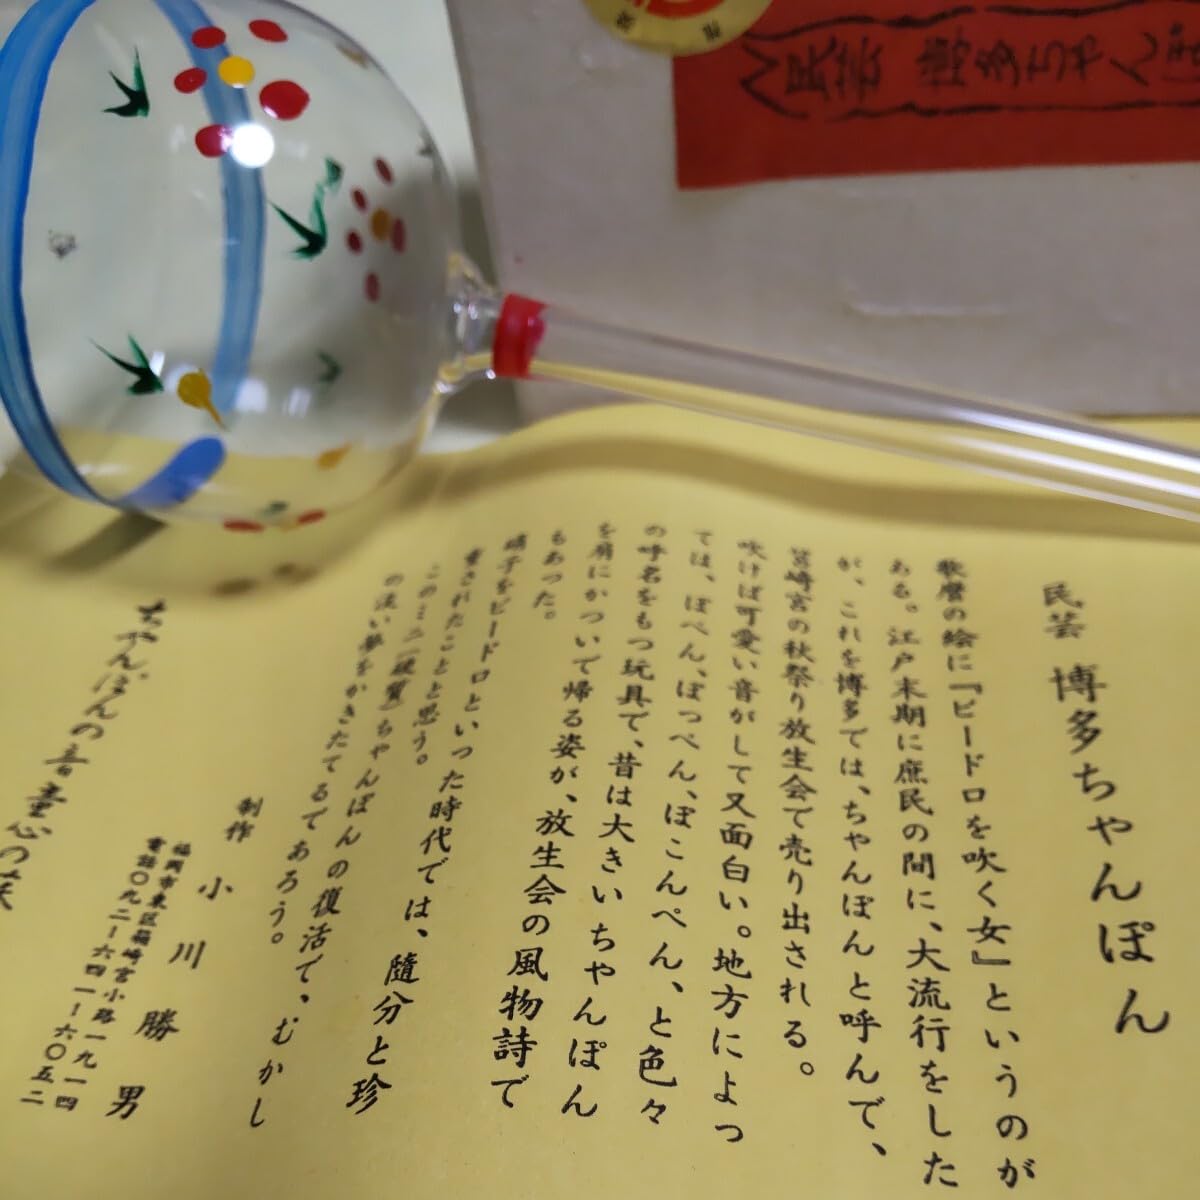 民芸 博多ちゃんぽ
民芸 博多ちゃんぽん
歌麿の絵に『ビードロを吹く女』というのが
ある。江戸末期に庶民の間に、大流行をした
が、これを博多では、ちゃんぽんと呼んで、
筥崎宮の秋祭り放生会で売り出される。
吹けば可愛い音がして又面白い。地方によっ
ては、ぽぺん、ぽっぺん、ぽこんぺん、と色々
の呼名をもつ玩具で、昔は大きいちゃんぽん
を肩にかついで帰る姿が、放生会の風物詩で
もあった。
硝子をビードロといった時代では、随分と珍
重されたことと思う。
このミニ硬質ちゃんぽんの復活で、むかし
の淡い夢をかきたてるであろう。
制作 小川勝男
福岡市東区箱崎宮小路一九ー一四
電話〇九二ー六四一ー六〇五二
ちゃんぽんの音童心の